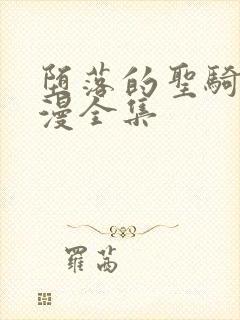 堕落的聖騎
漫全集
羅茜